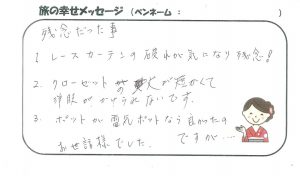 旅の幸せメッセージ (ペンネーム : )
残念だった事
1 レースカーテンの破れが気になり残念!
2. クローゼットの丈が短かくて
洋服がかけられないです。
3. ポットが電気ポットなら良かったの
ですが…
お世話様でした。